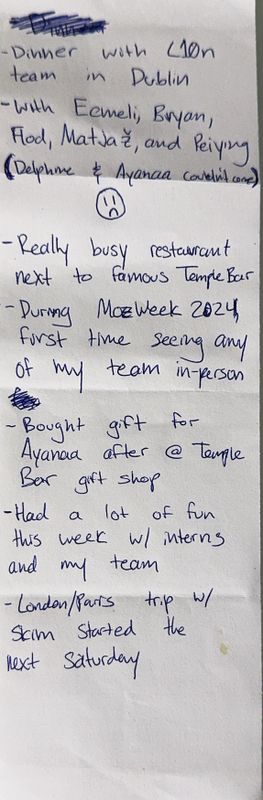 - Dinner with L10n
team in Dublin
- With Eemeli, Bryan,
Flod, Matjaž, and Peiying
(Delphine & Ayanaa couldn't come)
- Really busy restaurant
next to famous Temple Bar
- During MozWeek 2024,
first time seeing any
of my team in-person
- Bought gift for
Ayanaa after @ Temple
Bar gift shop
- Had a lot of fun
this week w/ interns
and my team
- London/Paris trip w/
Skim started the
next Saturday